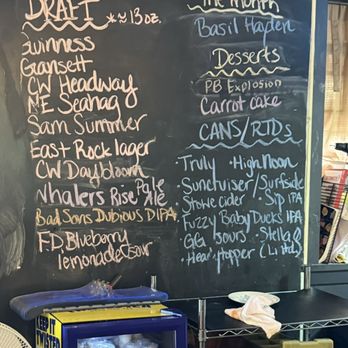 DRAFT * ≈ 13 oz.
Guinness
Gansett
CW Headway
NE Seahag
Sam Summer
East Rock lager
CW Daybloom
Nhalers Rise Pale Ale
Bad Sons Dubious DIPA
F.D. Blueberry
lemonade Sour
The Month
Basil Hayden
Desserts
PB Explosion
Carrot cake
CANS/RTDs
Truly · High Noon
· Suncruiser/Surfside
· Stowe cider · Sip IPA
· Fuzzy Baby Ducks IPA
· sours · Stella
· Topper (
KEEP IT
TWISTED